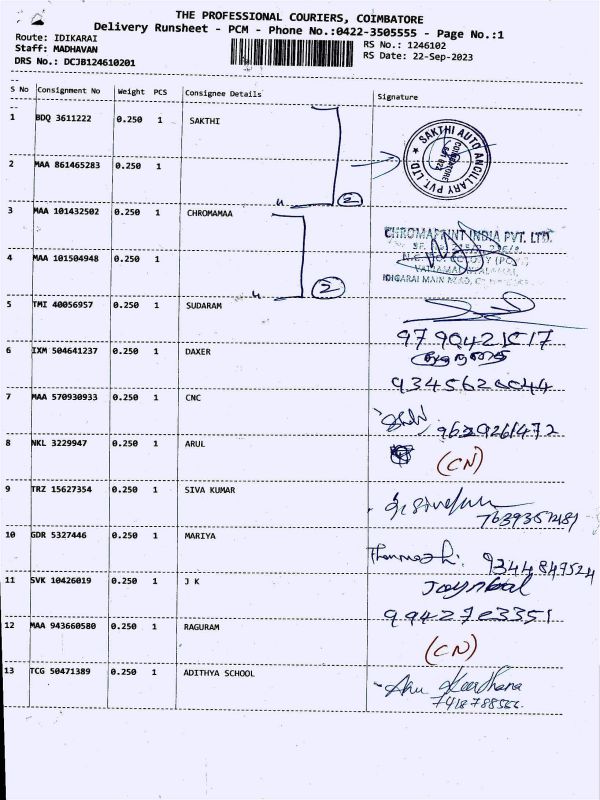 THE PROFESSIONAL COURIERS, COIMBATORE
Delivery Runsheet - PCM - Phone No.:0422-3505555 - Page No.:1
Route: IDIKARAI
RS No.: 1246102
Staff: MADHAVAN
RS Date: 22-Sep-2023
DRS No.: DCJB124610201
S No Consignment No Weight PCS Consignee Details Signature
1 BDQ 3611222 0.250 1 SAKTHI
SAKTHI AUTO ANCILLARY PVT. LTD.
2 MAA 861465283 0.250 1
2
3 MAA 101432502 0.250 1 CHROMAMAA
CHROMAPRINT INDIA PVT. LTD.
4 MAA 101504948 0.250 1
IDIGARAI MAIN ROAD,
2
5 TMI 40056957 0.250 1 SUDARAM
6 IXM 504641237 0.250 1 DAXER
7 MAA 570930933 0.250 1 CNC
9629261472
8 NKL 3229947 0.250 1 ARUL
(CN)
9 TRZ 15627354 0.250 1 SIVA KUMAR
10 GDR 5327446 0.250 1 MARIYA
9344849524
11 SVK 10426019 0.250 1 J K
12 MAA 943660580 0.250 1 RAGURAM
(CN)
13 TCG 50471389 0.250 1 ADITHYA SCHOOL